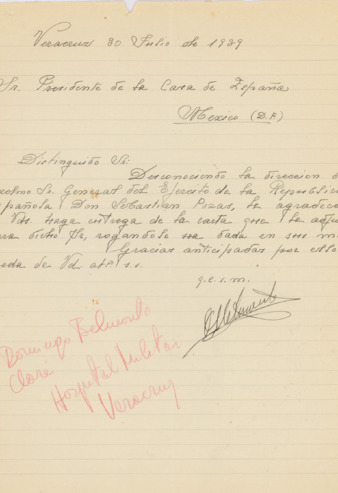 Veracruz 30 Julio de 1939
Sr. Presidente de la Casa de España
Mexico (D.F.)
Distinguido Sr:
Desconociendo la direccion d
Sr. General del Ejercito de la Republica
spañola Don Sebastian Pozas, le agradece
Vd. haga entrega de la carta que le adju
ra dicho Sr, rogandole sea dada en sus m
Gracias anticipadas por ello
eda de Vd. att. s.s.
q.e.s.m.
Domingo Belmonte
Clari
Hospital Militar
Veracruz